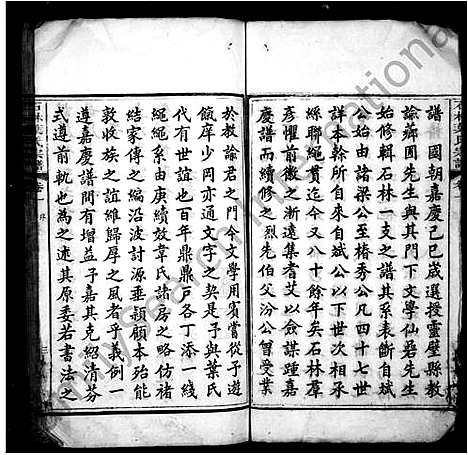 譜　國朝嘉慶己巳歲選授靈璧縣教
諭鄉圃先生與其門下文學仙醫先生
始修輯石林一支之譜其系表斷自斌
公始由諸梁公至椿秀公凡四十七世
詳本幹所自來自斌公以下世次相承
緜聯繩貫迄今又八十餘年矣石林羣
彥懼前徽之漸遠集耆艾以僉謀踵嘉
慶譜而續修之烈先伯父汾公曾受業
於教諭君之門今文學用賓嘗從予遊
飲岸少岡亦通文字之契是子與葉氏
代有世誼也百年鼎鼎戶各丁添一綫
繩繩系由庚續效韋氏諸房之略仿褚
結家傳之編沿波討源垂穎顧本殆能
敦收族之誼維歸厚之風者乎哉例一
遵嘉慶譜間有增益子嘉其克紹清芬
式遵前軌也為之述其原委若書法之
石林葉氏宗譜
卷一
序
三